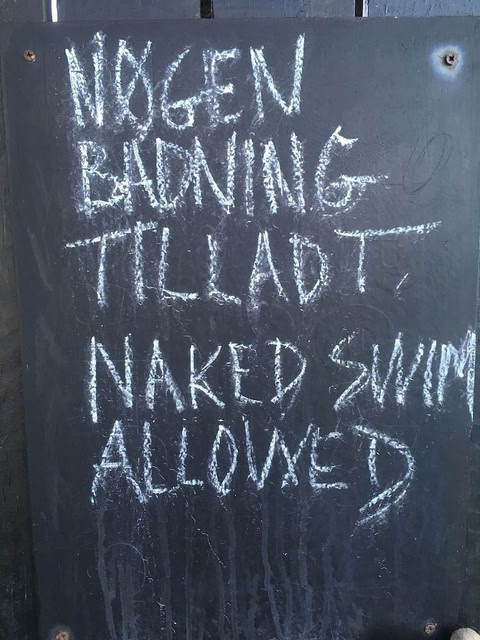 NØGEN
BADNING
TILLADT.
NAKED SWIM
ALLOWED